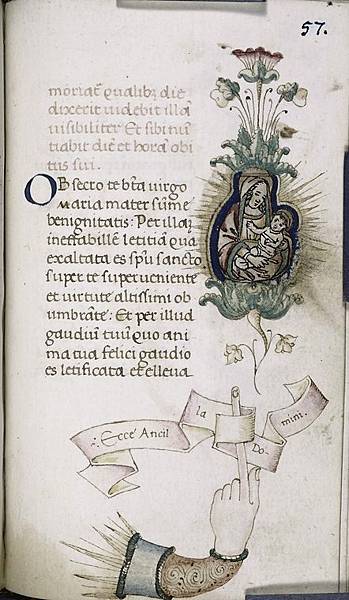 57.
moriat᷑ qualibꝫ die
dixerit uidebit illā
uisibiliter Et sibi nun
tiabit diē et horā obi
tus sui.
OBsecro te bt̄a uirgo
Maria mater sūme
benignitatis: Per illaꝫ
ineffabillē letitiā qua
exaltata es sp̄u sancto
super te superueniente
et virtute altissimi ob
umbrāte: Et per illud
gaudiuꝫ tuū quo ani
ma tua felici gaudio
es letificata et elleua
Ecce Ancil la Do mini.